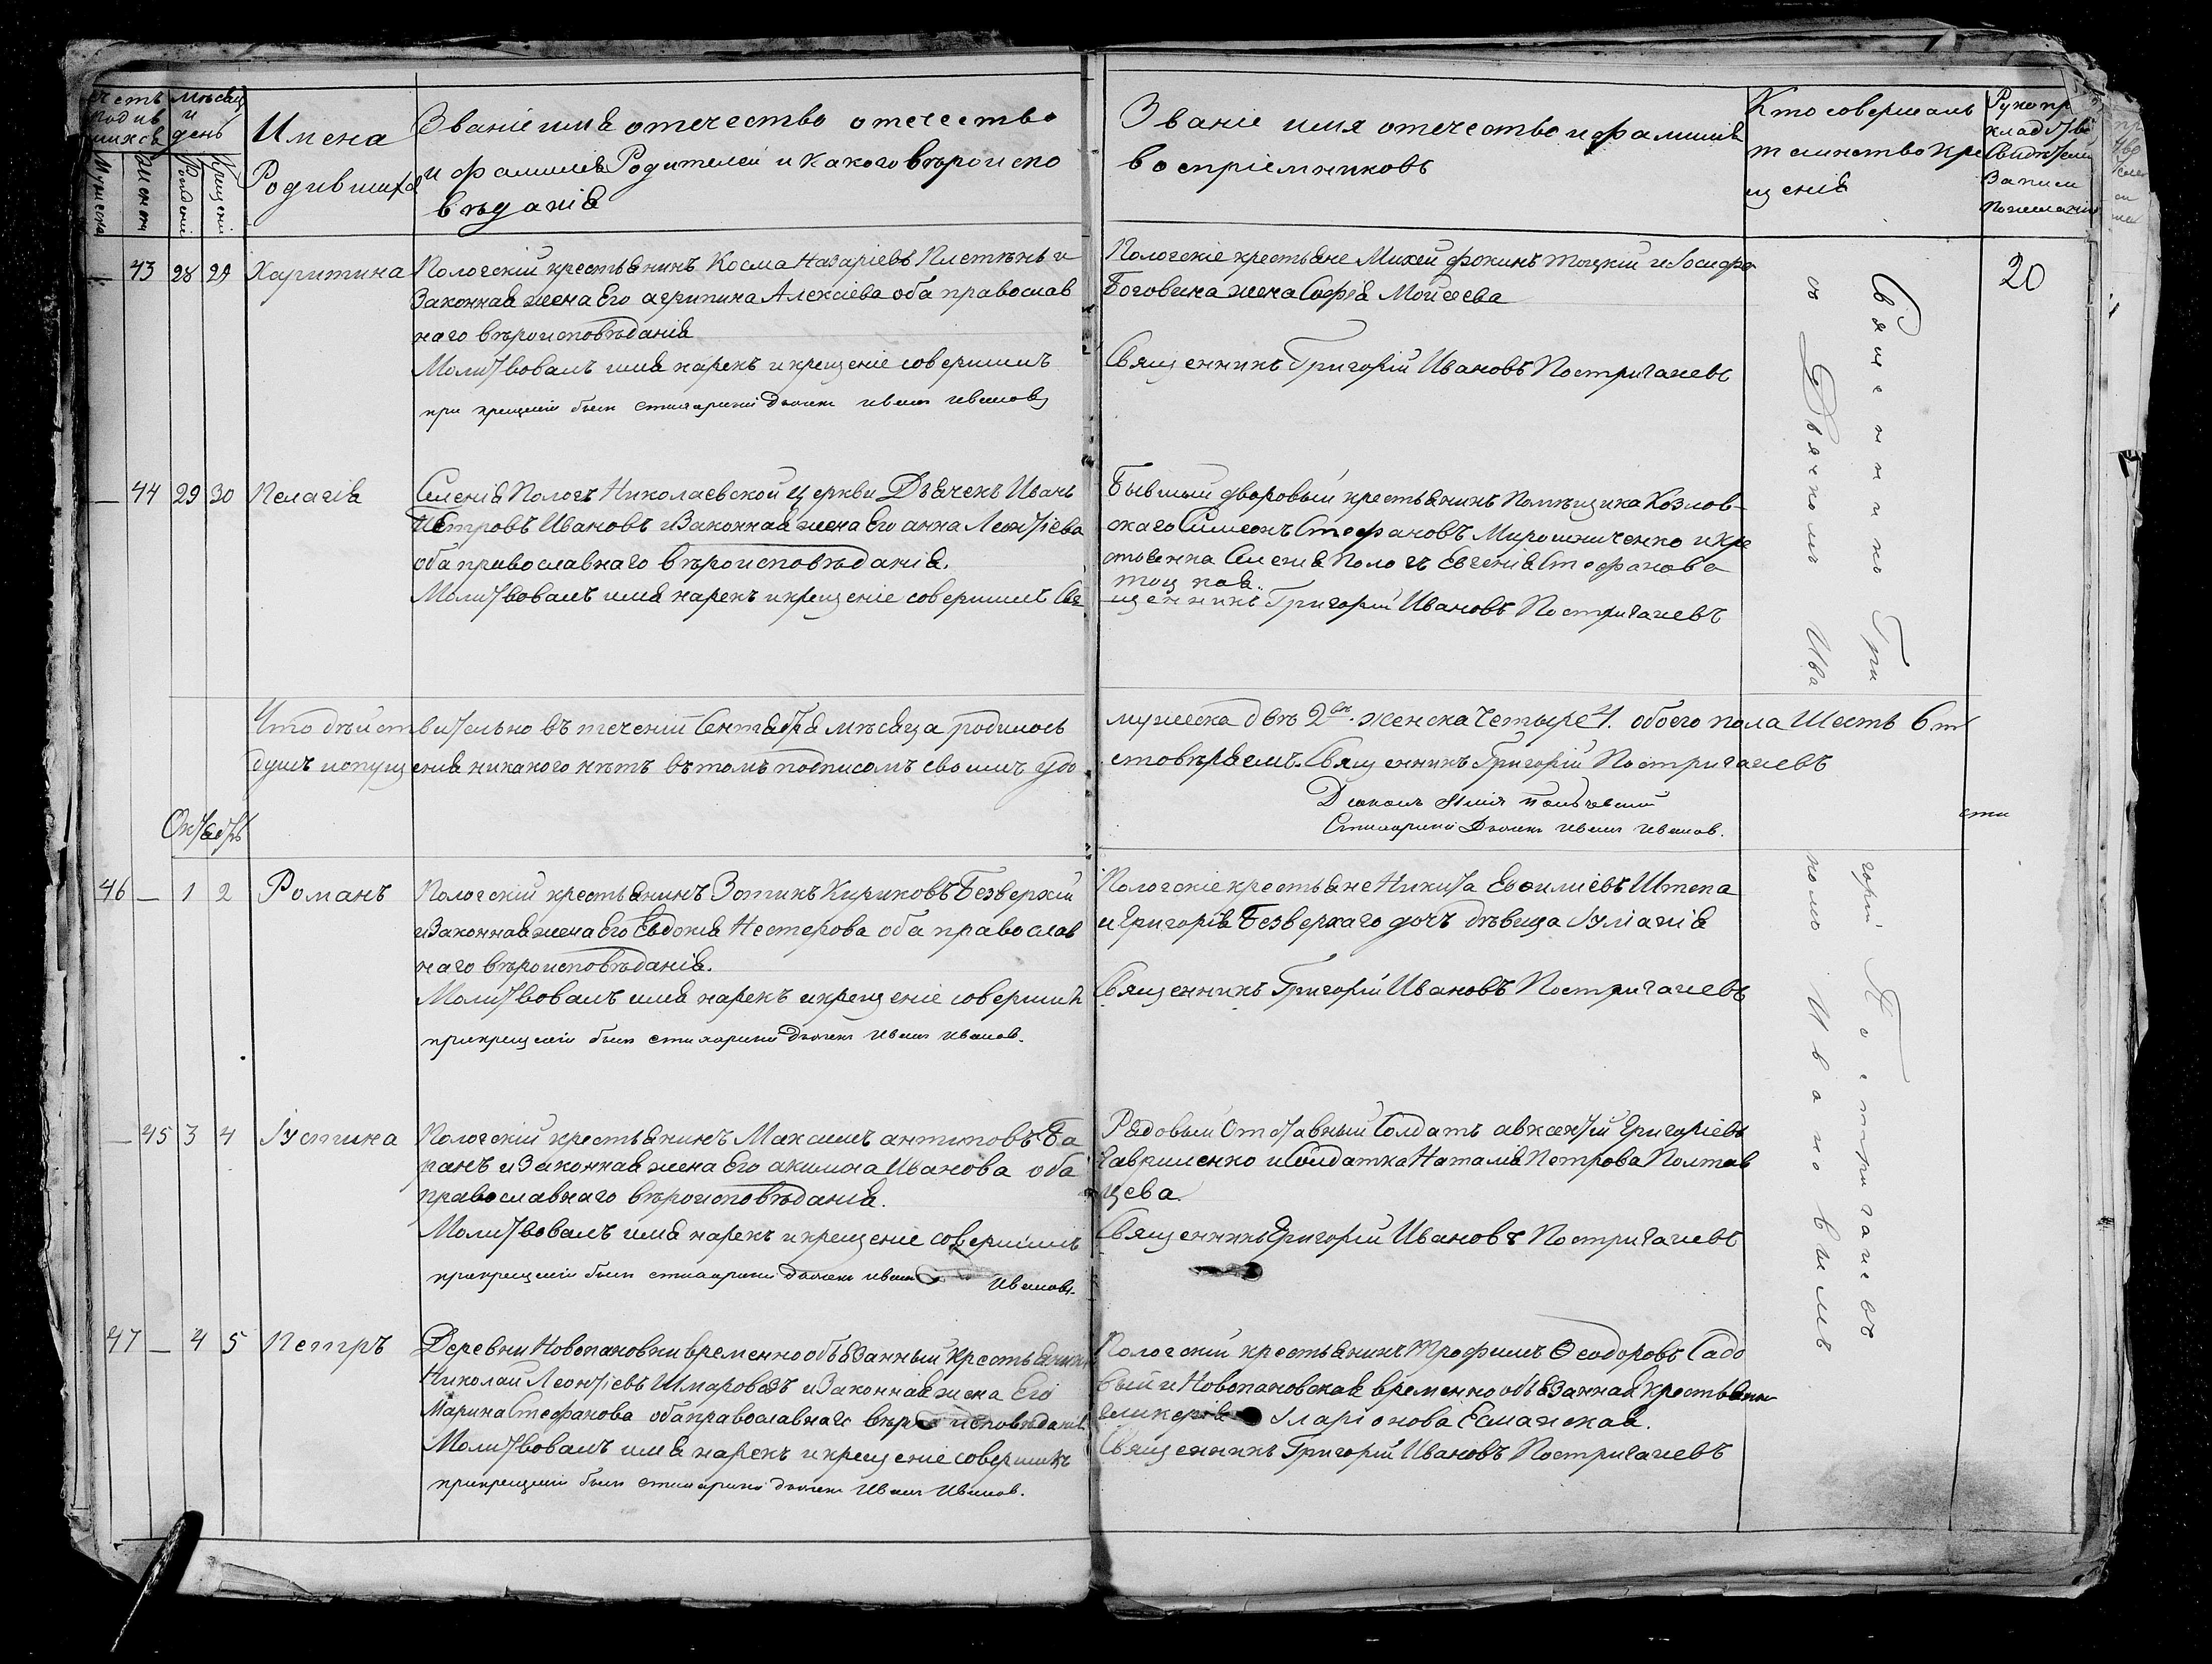 Счетъ родившихся
Мѣсяцъ и день
Мужеска
Женска
Рожденіе
Крещеніе
Имена
Родившихся
Званіе имя отечество отечество
и фамилія Родителей и какого вѣроиспо
вѣданія
Званіе имя отечество и фамилія
воспріемниковъ
Кто совершалъ
таинство кре
щенія
Рукопр
кладство
Свидѣтелей
Записи
по желанію
— 43 28 29 Харитина
Пологскій крестьянинъ Косма Назаріевъ Плетѣнь и
Законная жена Его агрипина Алексіева оба православ
наго вѣроисповѣданія
Молитвовалъ имя нарекъ и крещеніе совершилъ
при крещеніи былъ стихарный дьячекъ иванъ ивановъ
Пологскіе крестьяне Михей фокинъ тоцкій и Іосифа
Боговина жена Софія Мойсеева
Священникъ Григорій Ивановъ Постригачевъ
20
— 44 29 30 Пелагія
Селенія Пологъ Николаевской Церкви Дьячекъ Иванъ
Петровъ Ивановъ и Законная жена Его анна Леонтіева
оба православнаго вѣроисповѣданія.
Молитвовалъ имя нарекъ и крещеніе совершилъ Свя
Бывшый дворовый крестьянинъ Помѣщика Козлов-
скаго Симеонъ Стефановъ Мирошниченко и кре
стьянка Селенія Пологъ Евгенія Стефанова
тоцкая.
щенникъ Григорій Ивановъ Постригачевъ
Что дѣйствительно въ теченіи Сентября мѣсяца родилось
мужеска двѣ 2 женска Четыре 4. обоего пола Шесть 6ть
душъ и опущенія никакого нѣтъ въ томъ подписомъ своимъ удо
стовѣряемъ. Священникъ Григорій Постригачевъ
Стихарный Дьячекъ Иванъ Ивановъ.
Октябрь
46 — 1 2 Романъ
Пологскій крестьянинъ Зотикъ Кириковъ Безверхій
и Законная жена Его Евдокія Нестерова оба православ
наго вѣроисповѣданія.
Молитвовалъ имя нарекъ и крещеніе совершилъ
при крещеніи былъ стихарный дьячекъ Иванъ Ивановъ.
Пологскіе крестьяне Никита Евфиміевъ Штепа
и Григорія Безверхаго дочъ дѣвица Іуліанія
Священникъ Григорій Ивановъ Постригачевъ
— 45 3 4 Іустина
Пологскій крестьянинъ Максимъ антиповъ Ба
ранъ и Законная жена Его акилина Иванова оба
православнаго вѣроисповѣданія.
Молитвовалъ имя нарекъ и крещеніе совершилъ
при крещеніи былъ стихарный дьячекъ иванъ Ивановъ.
Рядовый Отставный Солдатъ авксентій Григоріевъ
Гавриленко и Солдатка Наталія Петрова Полтав
цева
Священникъ Григорій Ивановъ Постригачевъ
47 — 4 5 Петръ
Деревни Новопановки временнообязанный крестьянинъ
Николай Леонтіевъ Шмаровозъ и Законная жена Его
Марина Стефанова оба православнаго вѣроисповѣданія
Молитвовалъ имя нарекъ и крещеніе совершилъ
при крещеніи былъ стихарный дьячекъ Иванъ Ивановъ.
Пологскій крестьянинъ Трофимъ Ѳеодоровъ Садо
вый и Новопановская временнообязанная крестьянка
гликерія Иларіонова Есманская.
Священникъ Григорій Ивановъ Постригачевъ
Священникъ Григорій Постригачевъ
съ Дьячкомъ Иваномъ Ивановымъ